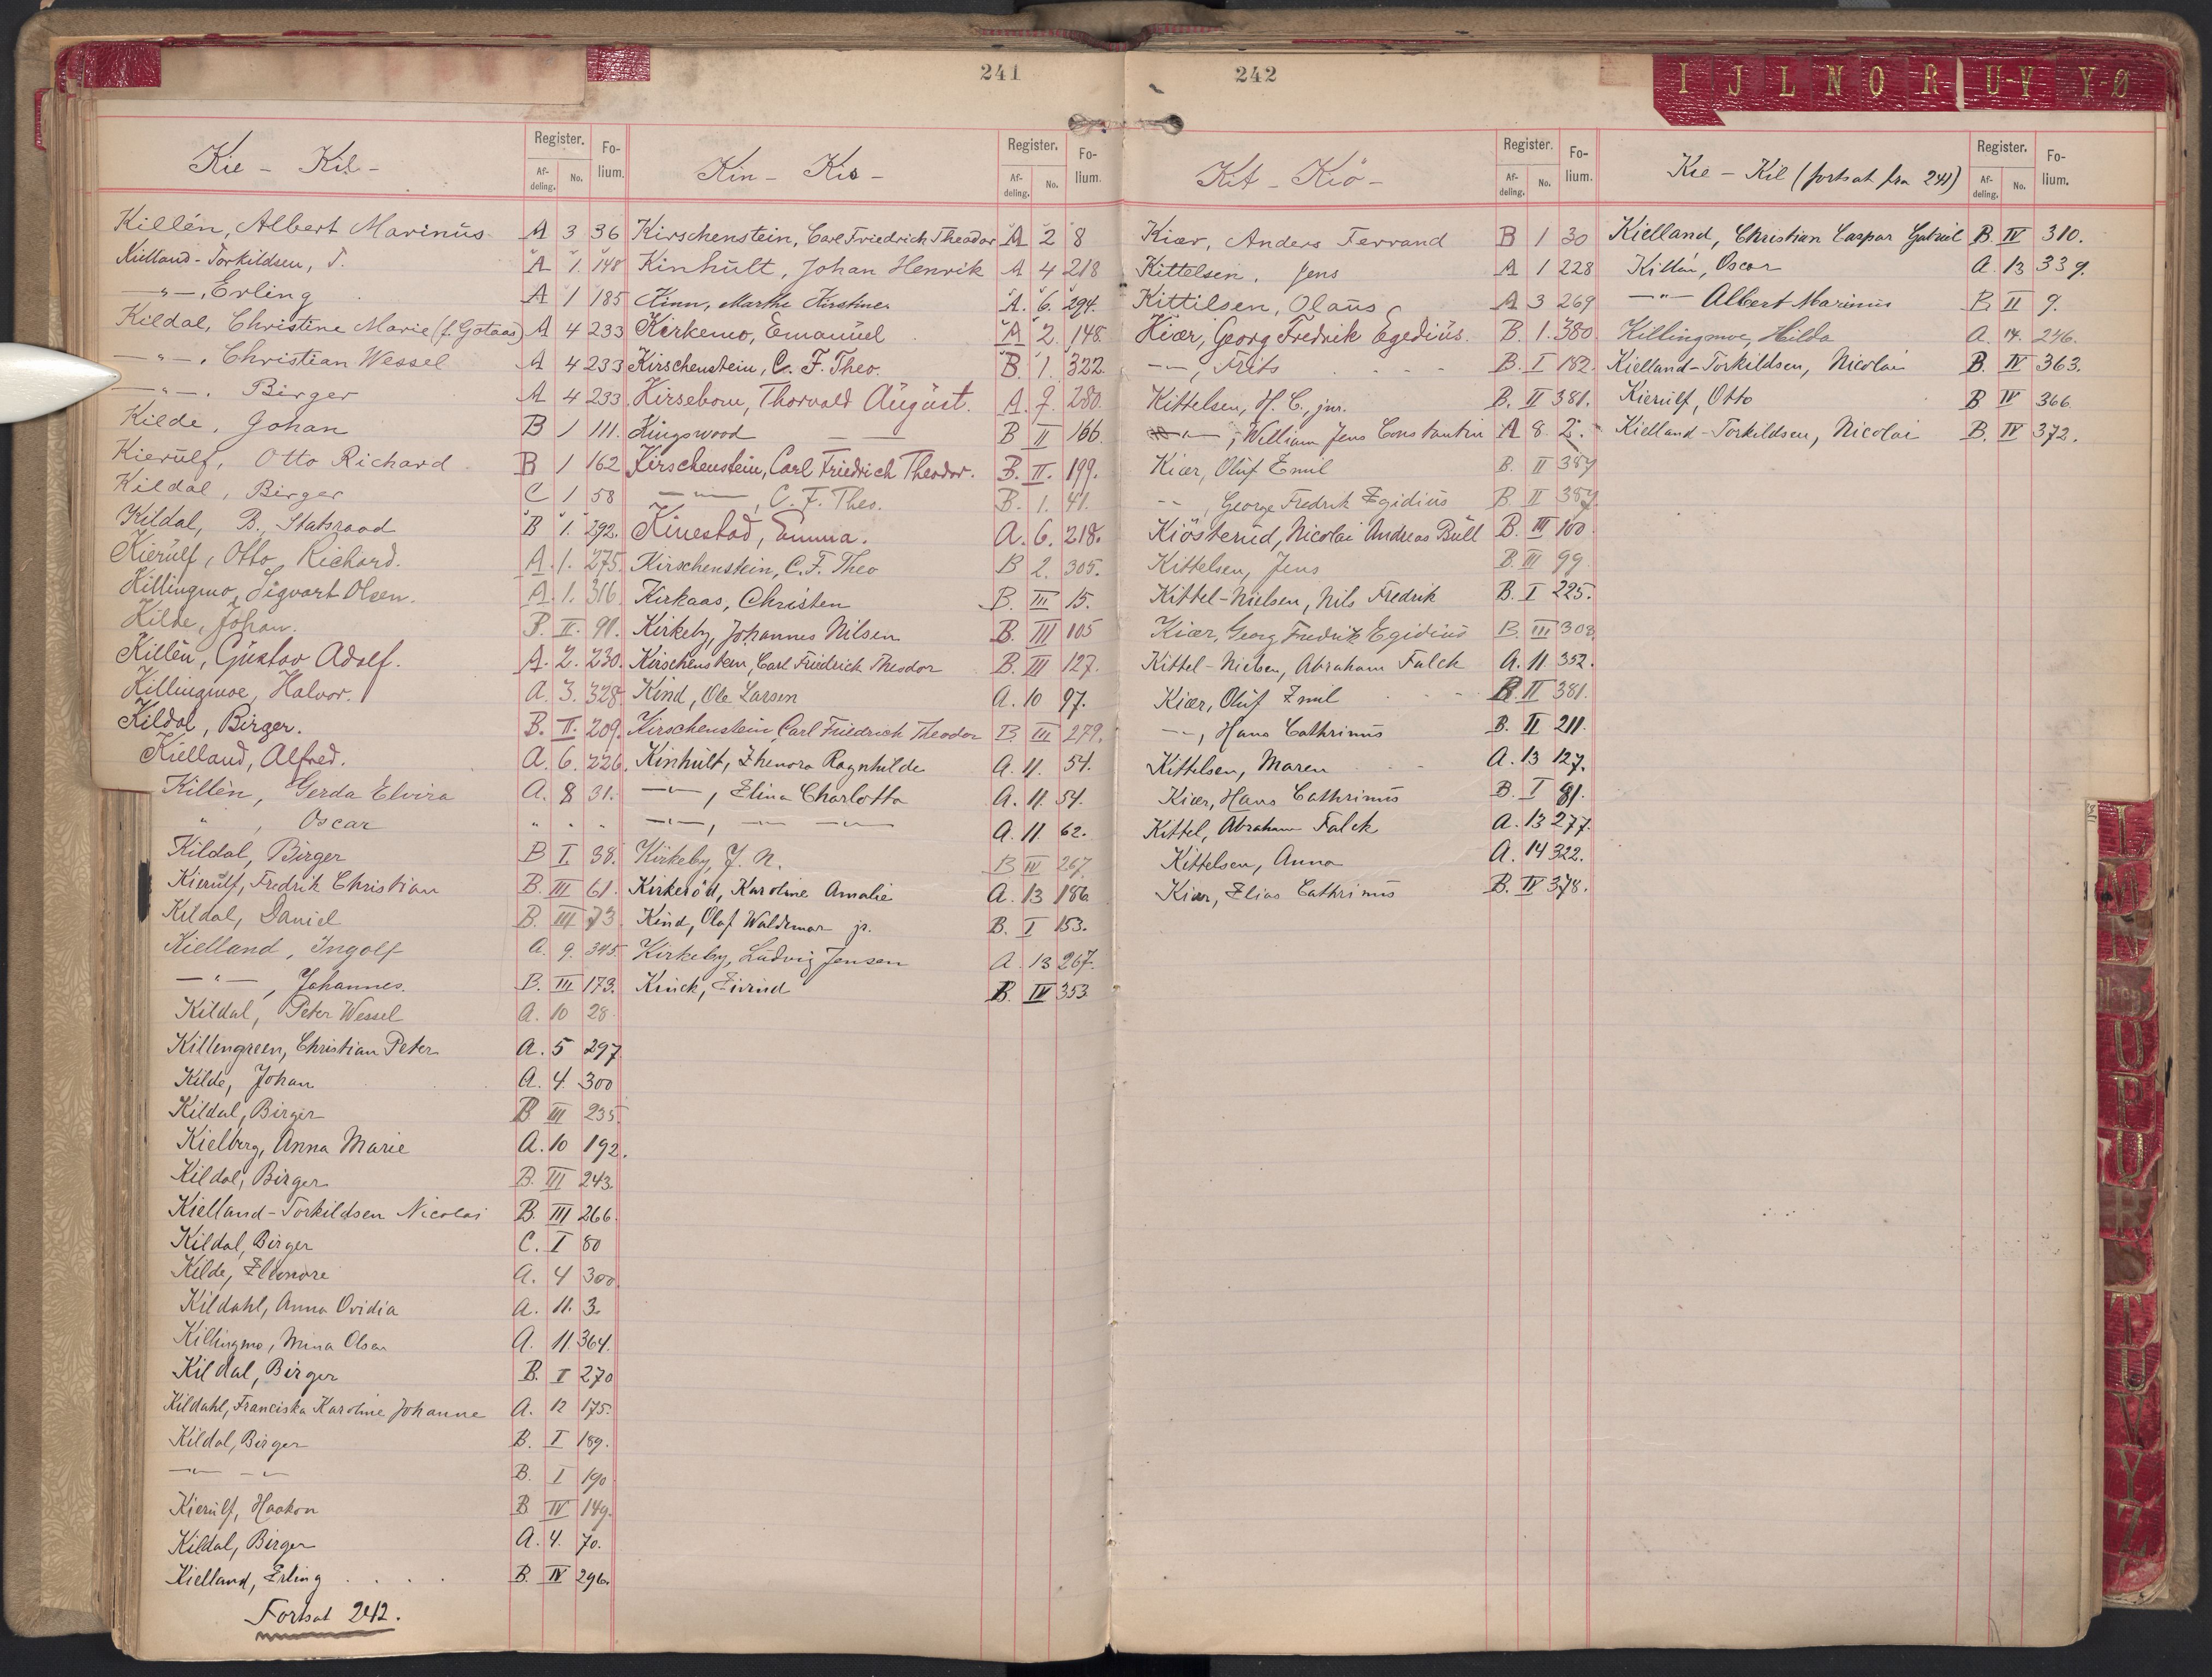 241
Kie - Kil -
Register. Afdeling. No. Folium.
Killén, Albert Marinus A 3 36
Kielland-Torkildsen, T. A 1. 148
—"—, Erling A 1 185
Kildal, Christine Marie (f. Götaas) A 4 233
—"—, Christian Wessel A 4 233
—"—. Birger A 4 233
Kilde, Johan B 1 111.
Kierulf, Otto Richard B 1 162
Kildal, Birger C 1 58
Kildal, B., Statsraad B 1. 292.
Kierulf, Otto Richard. A. 1. 275.
Killingmo, Sigvart Olsen. A. 1. 316.
Kilde, Johan. B. II. 91.
Killén, Gustav Adolf. A. 2. 230.
Killingmoe, Halvor. A. 3. 328.
Kildal, Birger. B. II. 209.
Kielland, Alfred. A. 6. 226.
Killén, Gerda Elvira A. 8 31.
" , Oscar " " "
Kildal, Birger B I. 38.
Kierulf, Fredrik Christian B. III 61.
Kildal, Daniel B. III 73.
Kielland, Ingolf A. 9. 345.
—"—, Johannes. B. III 173.
Kildal, Peter Wessel A. 10 28.
Killengreen, Christian Peter A. 5 297
Kilde, Johan A. 4. 300
Kildal, Birger B. III 235.
Kielberg, Anna Marie A. 10 192.
Kildal, Birger B. III 243.
Kielland-Torkildsen Nicolai B. III 266.
Kildal, Birger C. I 80
Kilde, Eleonore A. 4 300.
Kildahl, Anna Ovidia A. 11. 3.
Killingmo, Mina Olsen A. 11. 364.
Kildal, Birger B. I 270
Kildahl, Franciska Karoline Johanne A. 12 175.
Kildal, Birger B. I 189.
—"— —"— B. I 190
Kierulf, Haakon B IV 149.
Kildal, Birger A. 4. 70.
Kielland, Erling . . . . B. IV 296.
Fortsat 242.
Kin - Kis -
Register. Afdeling. No. Folium.
Kirschenstein, Carl Friedrich Theodor A 2 8
Kinhult, Johan Henrik A 4 218
Kinn, Marthe Kirstine. A. 6. 294.
Kirkemo, Emanuel A 2. 148.
Kirschenstein, C. F. Theo. B. 1. 322.
Kirsebom, Thorvald August. A. 7. 280.
Kingswood — — B II 166.
Kirschenstein, Carl Friedrich Theodor. B. II. 199.
—"—, C. F. Theo. B. 1. 41.
Kinestad, Emma. A. 6. 218.
Kirschenstein, C. F. Theo B 2. 305.
Kirkaas, Christen B. III 15.
Kirkeby, Johannes Nilsen B. III 105
Kirschenstein, Carl Friedrich Theodor B. III 127.
Kind, Ole Larsen A. 10 97.
Kirschenstein Carl Friedrich Theodor B. III 279.
Kinhult, Ehenora Ragnhilde A. 11. 54.
—"—, Elina Charlotta A. 11. 54.
—"—, —"— —"— A. 11. 62.
Kirkeby, J. N. B IV 267.
Kirkeröd, Karoline Amalie A. 13 186.
Kind, Olaf Waldemar jr. B. I 153.
Kirkeby, Ludvig Jensen A. 13 267.
Kinck, Eivind B. IV 353.
242
Kit - Kiö -
Register. Afdeling. No. Folium.
Kiær, Anders Ferrand B 1 30
Kittelsen, Jens A 1 228
Kittilsen, Olaus A 3 269
Kiær, Georg Fredrik Egedius. B. 1. 380
—"—, Frits . . . . B. I 182.
Kittelsen, H. C., jnr. B. II 381.
—"—, William Jens Constantin A 8 2.
Kiær, Oluf Emil B. II 387
—"—, George Fredrik Egidius B II 387.
Kiösterud, Nicolai Andreas Bull B. III 100
Kittelsen, Jens B. III 99
Kittel-Nielsen, Nils Fredrik B. I 225.
Kiær, Georg Fredrik Egidius B. III 308.
Kittel-Nielsen, Abraham Falck A. 11. 352.
Kiær, Oluf Emil B. II 381.
—"—, Hans Cathrinus B. II 211.
Kittelsen, Maren A. 13 127.
Kiær, Hans Cathrinus B. I 81.
Kittel, Abraham Falck A. 13 277.
Kittelsen, Anna A. 14 322.
Kiær, Elias Cathrinus B. IV 378.
Kie - Kil (fortsat fra 241)
Register. Afdeling. No. Folium.
Kielland, Christian Caspar Gabriel B. IV 310.
Killén, Oscar A. 13 339.
—"— Albert Marinius B. II 9.
Killingmoe, Hilda A. 14. 246.
Kielland-Torkildsen, Nicolai B. IV 363.
Kierulf, Otto B IV 366.
Kielland-Torkildsen, Nicolai B. IV 372.
I J L N O R U-V Y-Ø
I
M
N
U
P
U
R
T
U
V
Y
Z